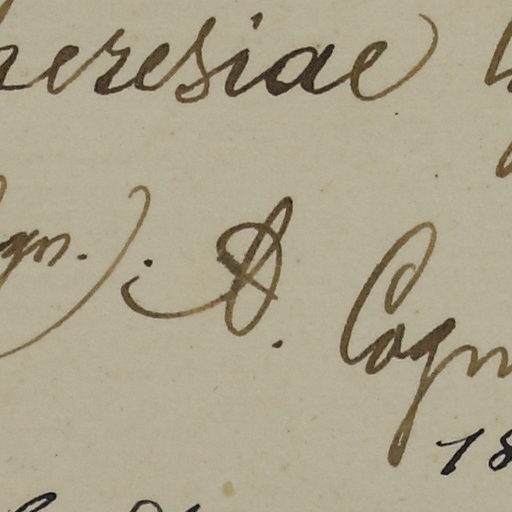 heresiae
gn.). A. Cogn
18